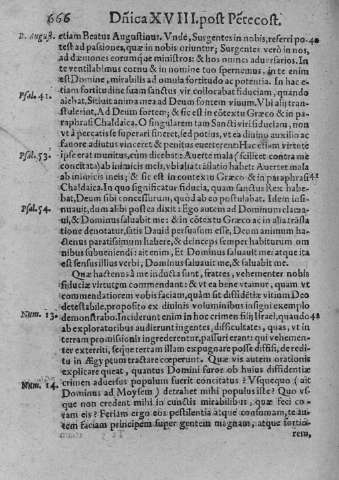 666 Dñica XVIII. post Pẽtecost.
D. August. etiam Beatus Augustinus. Vnde, Surgentes in nobis, referri po- 40
test ad passiones, quæ in nobis oriuntur; Surgentes verò in nos,
ad dæmones eorumque ministros: & hos omnes aduersarios. In
te ventilabimus cornu & in nomine tuo spernemus, in te enim
est Domine, mirabilis ad omnia fortitudo ac potentia. In hac e-
tiam fortitudine suam sanctus vir collocabat fiduciam, quando
Psal. 41. aiebat, Sitiuit anima mea ad Deum fontem viuum. Vbi alij tran-
stulerint, Ad Deum fortem; & sic est in cõtextu Græco & in pa-
raphrasi Chaldaica. O singularem tam Sancti viri fiduciam, non
vt à peccatis se superari sineret, sed potius, vt ea diuino auxilio ac
fauore adiutus vinceret & penitus euerteret: Hac etiam virtute
Psal. 53. ipse erat munitus, cum dicebat: Auerte mala (scilicet contra me
concitata) ab inimicis meis, vbi alia trãslatio habet: Auertet mala
ab inimicis meis; & sic est in contextu Græco & in paraphrasi 41
Chaldaica. In quo significatur fiducia, quam sanctus Rex habe-
bat, Deum sibi concessurum, quod ab eo postulabat. Idem insi-
Psal. 54. nuauit, dum alibi postea dixit: Ego autem ad Dominum clama-
ui, & Dominus saluabit me: & in cõtextu Græco ac in alia trãsla
tione denotatur, sitis Dauid persuasum esse, Deum animum ha-
ctenus paratissimum habere, & deinceps semper habiturum om
nibus subueniendi: ait enim, Et Dominus saluauit me: atque ita
est sensus illius verbi, Dominus saluauit me, & saluabit me.
Quæ hactenus à me inducta sunt, fratres, vehementer nobis
fiduciæ virtutem commendant: & vt ea bene vtamur, quam vt
commendatiorem vobis faciam, quàm sit diffidẽtiæ vitium Deo
detestabile, proposito ex diuinis voluminibus insigni exemplo
Num. 13. demonstrabo. Inciderunt enim in hoc crimen filij Israel, quando 42
ab exploratoribus audirent ingentes, difficultates, quas, vt in
terram promissionis ingrederentur, passuri erant: qui vehemen-
ter exterriti, seque terram illam expugnare posse diffisi, de redi-
tu in Ægyptum tractare cœperunt. Quæ vis autem orationis
explicare queat, quantus Domini furor ob huius diffidentiæ
Num. 14. crimen aduersus populum fuerit concitatus? Vsquequo (ait
Dominus ad Moysem) detrahet mihi populus iste? Quo vs-
que non credent mihi in cunctis mirabilibus, quæ feci co-
ram eis? Feriam ergo eos pestilentia atque consumam, te au-
tem faciam principem super gentem magnam, atque fortio-
rem,